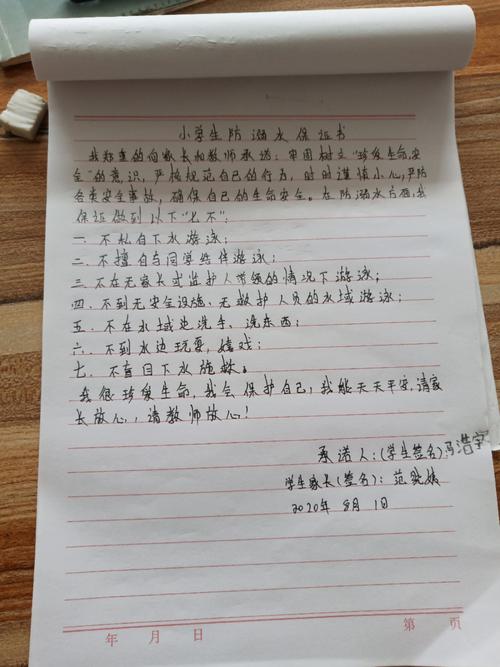 小学生防溺水保证书
我郑重的向家长和教师承诺：牢固树立“珍爱生命，安
全”的意识，严格规范自己的行为，时时谨慎小心，严防
各类安全事故，确保自己的生命安全。在防溺水方面，我
保证做到以下“七不”：
一、不私自下水游泳；
二、不擅自与同学结伴游泳；
三、不在无家长或监护人带领的情况下游泳；
四、不到无安全设施、无救护人员的水域游泳；
五、不在水域边洗手、洗东西；
六、不到水边玩耍、嬉戏；
七、不盲目下水施救。
我很珍爱生命，我会保护自己；我能天天平安，请家
长放心，请教师放心！
承诺人：(学生签名)冯浩宇
学生家长(签名)：范
2020年8月1日
年 月 日 第 页